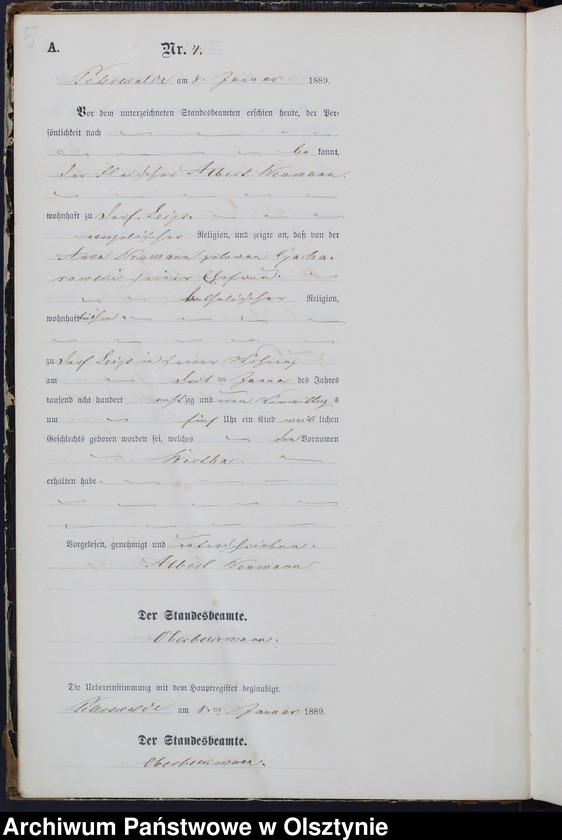 5
A.
Nr. 4.
Peterswalde am 8. Januar 1889.
Vor dem unterzeichneten Standesbeamten erschien heute, der Per-
sönlichkeit nach
be kannt,
der Fleischer Albert Neumann
wohnhaft zu Dorf Leip
evangelischer Religion, und zeigte an, daß von der
Anna Neumann geboren
seiner Ehefrau
katholischer Religion,
wohnhaft bei ihm
zu Dorf in seiner Wohnung
am dritten Januar des Jahres
tausend acht hundert acht zig und neun Vormittags
um fünf Uhr ein Kind weib lichen
Geschlechts geboren worden sei, welches den Vornamen
Bertha
erhalten habe.
Vorgelesen, genehmigt und unterschrieben.
Albert Neumann
Der Standesbeamte.
Die Uebereinstimmung mit dem Hauptregister beglaubigt.
Peterswalde am 8. ten Januar 1889.
Der Standesbeamte.
Archiwum Państwowe w Olsztynie